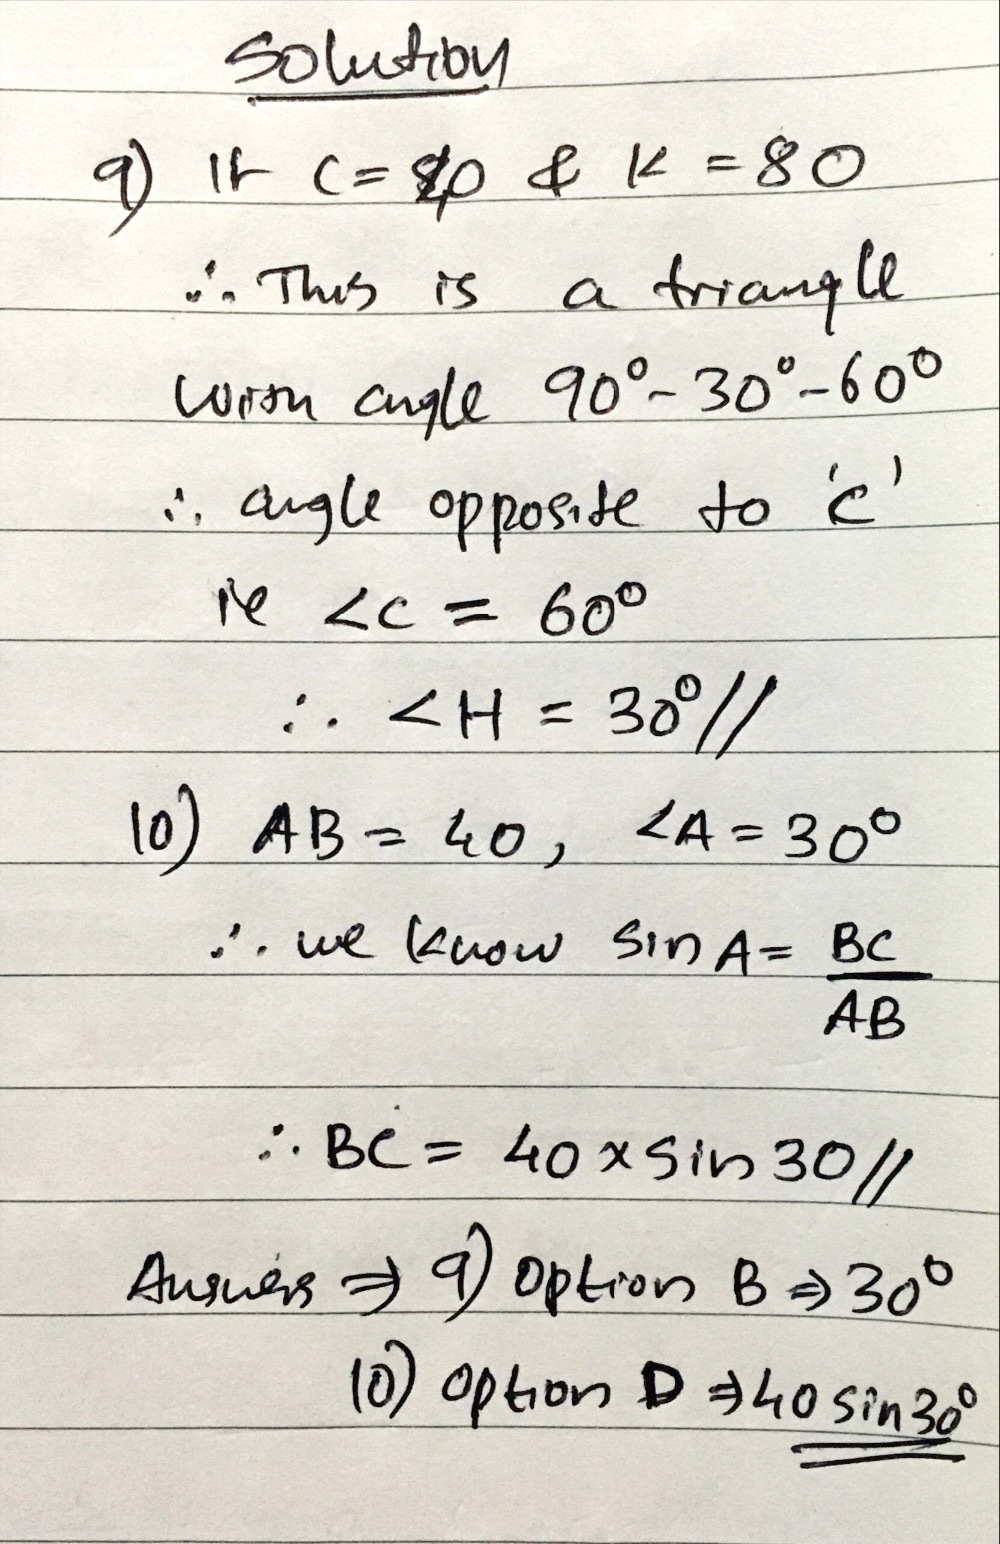 Solution
9) If C = 40 & K = 80
∴ This is a triangle
with angle 90°-30°-60°
∴ angle opposite to 'c'
ie <C = 60°
∴ <H = 30°//
10) AB = 40, <A = 30°
∴ we know sin A = BC/AB
∴ BC = 40 x sin 30//
Answers ⇒ 9) Option B ⇒ 30°
10) Option D ⇒ 40 sin 30°